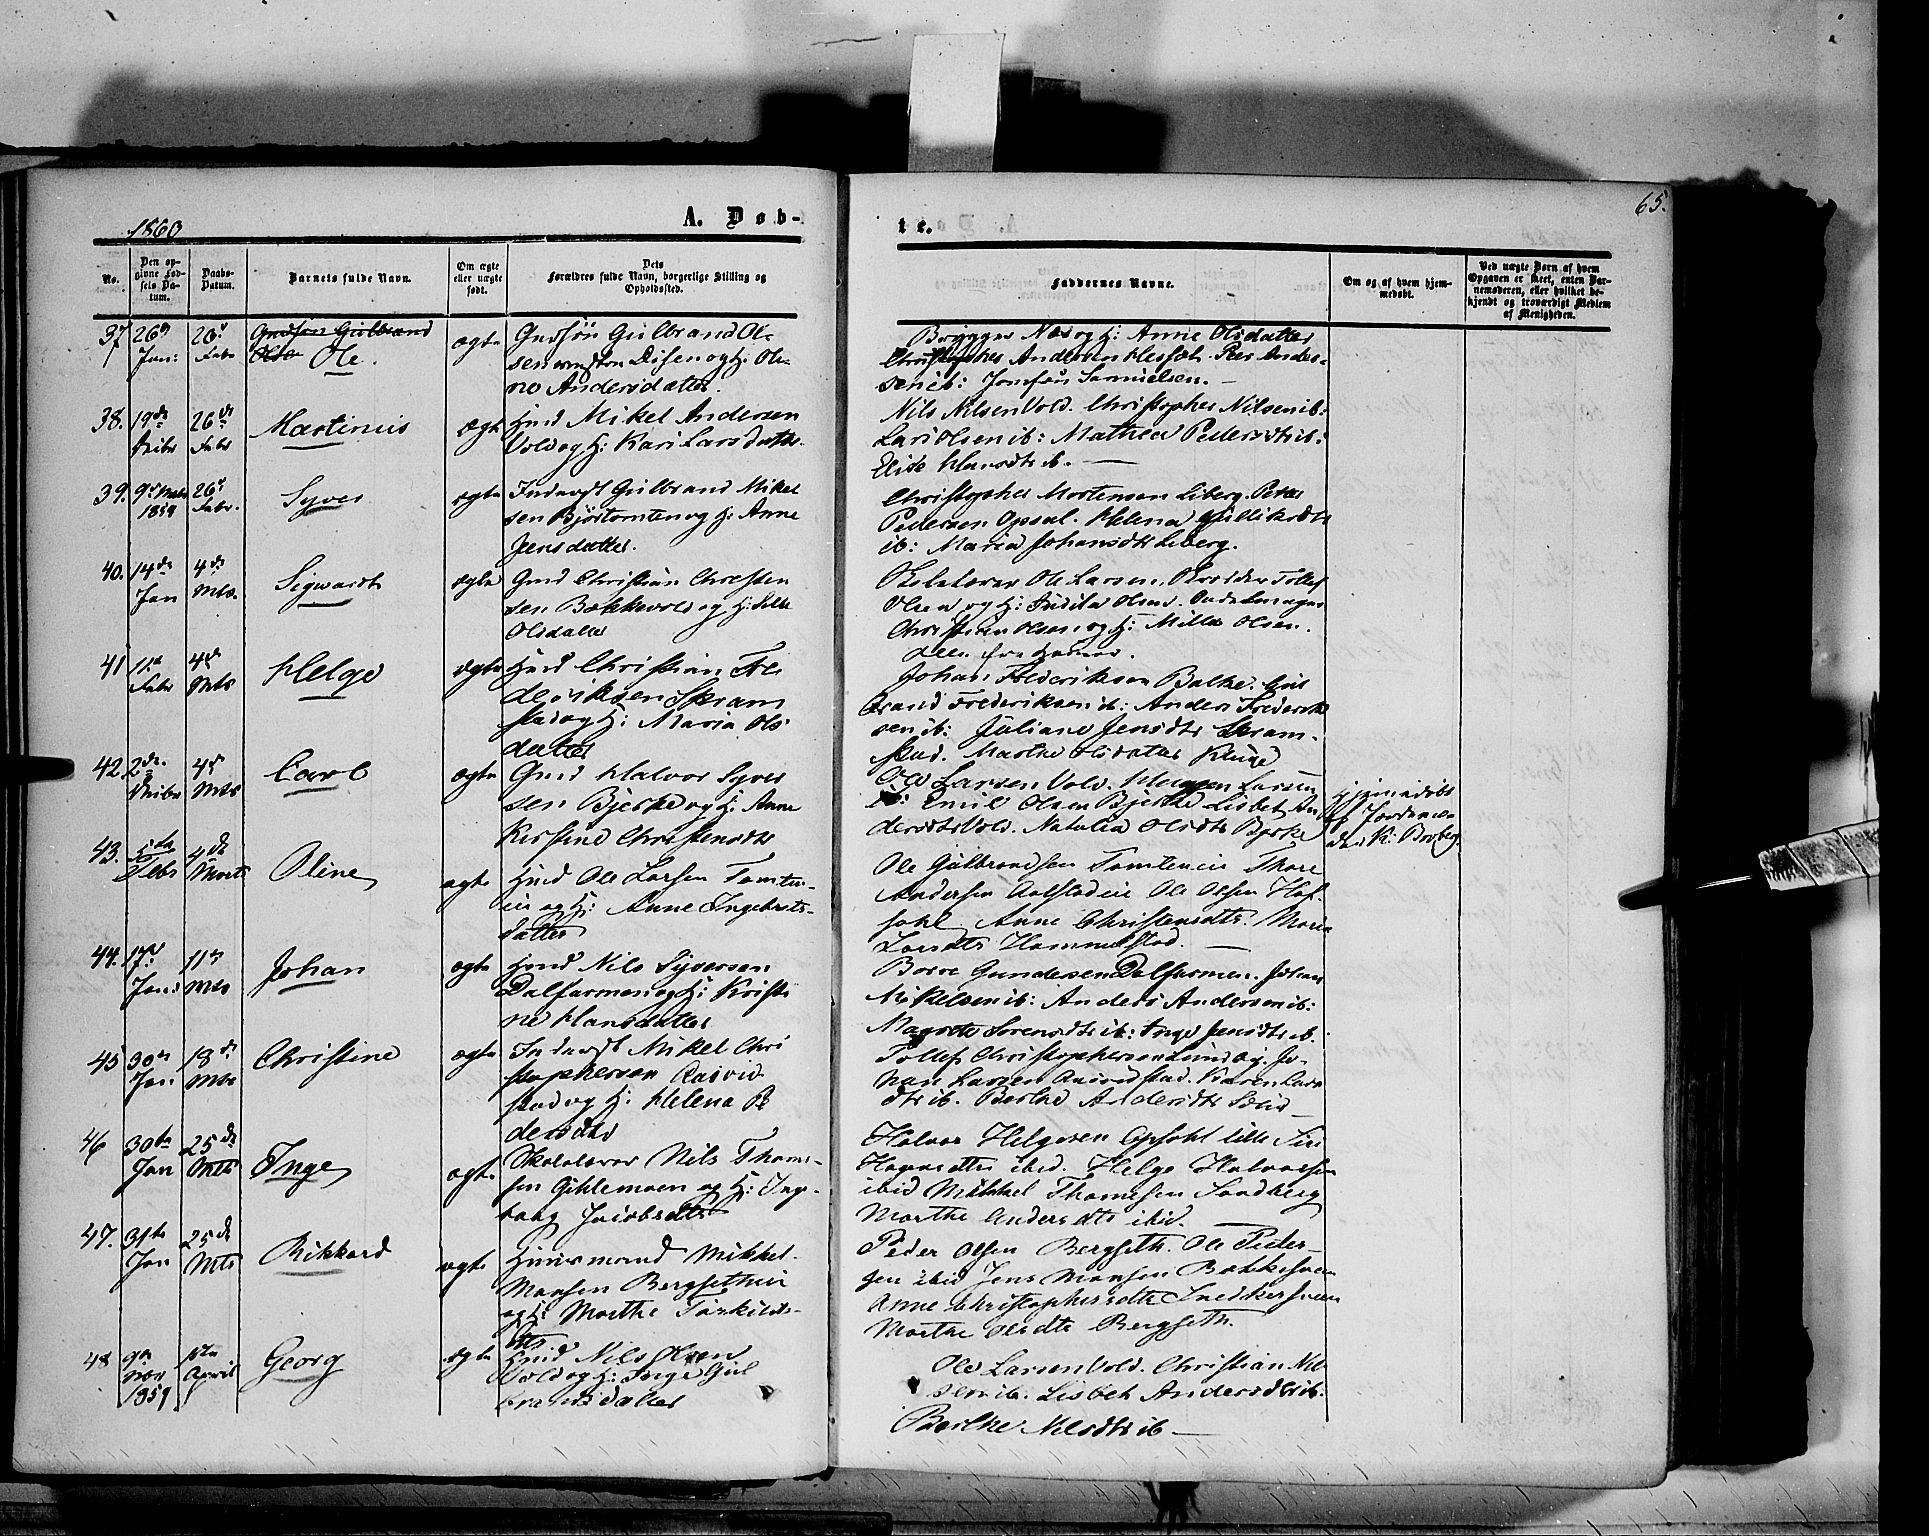 1860
A. Døb-
te.
65.
No.
Den op-
givne Fød-
sels Da-
tum.
Daabs-
Datum.
Barnets fulde Navn.
Om ægte
eller uægte
født.
Dets
Forældres fulde Navn, borgerlige Stilling og
Opholdssted.
Faddernes Navne.
Om og af hvem hjem-
medøbt.
Ved uægte Børn af hvem
Opgaven er skeet, enten Bar-
nemoderen, eller hvilket be-
kjendt og troværdigt Medlem
af Menigheden.
37 26 Jan: 26 Febr
Gulbrand
Olsen Ole.
ægte
Gulbrand Ol-
sen Disen og H: Ole-
ne Andersdatter.
Brygger Næs og H: Anne Olsdatter
Christopher Andersen Per Ander-
sen ib: Jomfru Samuelsen.
38. 19de 26de Febr
Martinius
ægte
Huusd Mikel Andersen
Vold og H: Kari Larsdatter.
Nils Nilsen Vold. Christopher Nilsen ib:
Lars Olsen ib: Mathea Pedersdtr ib:
Elise Hansdtr ib.
39. 9d 1859 26d Febr.
Syver
ægte
Inderst Gulbrand Mikel
sen og H: Anne
Jensdatter.
Christopher Mortensen Liberg. Peter
Pedersen Opsal. Helena Gulliksdtr
ib: Maria Johansdtr Liberg.
40. 14de Jan 4de Mts.
Sigwardt
ægte
Gmd Christian Christen
sen Bækkevold og H:
Olsdatter
Skolelærer Ole Larsen. Tollef
Olsen og H: Olsen.
Christian Olsen og H: Milla Olsen.
Alle fra Hamar.
41 11te Febr 4de Mts
Helge
ægte
Huusd Christian Fre
deriksen Skram
stad og H: Maria Ols
datter
Johan Frederiksen Balke. Gul
brand Frederiksen ib: Anders Frederik
sen ib: Juliane Jensdtr Skram-
stad. Marthe Olsdatter
42. 2den 4de Mts
Carl
ægte
Gmd Halvor Syver
sen Bjerke og H: Anne
Kirstine Christensdtr
Ole Larsen Vold. Larsen
ib: Emil Olsen Bjerke Lisbet An
dersdtr Vold. Natalia Olsdtr Bjerke
Hjemmedøbt
af Jordemo-
der K: Broberg.
43. 5te Febr 4de Marts
Oline
ægte
Huusd Ole Larsen Tomten-
eie og H: Anne Ingebrets-
datter
Ole Gulbrandsen Tomteneie Thore
Andersen Ole Olsen Hof-
sahl, Anne Christensdtr. Maria
Larsdtr Hammelstad.
44. 17d Jan: 11te Mts
Johan
ægte
Huusd Nils Syversen
Dalfarmen og H: Kristi
ne Hansdatter
Borre Gundersen Dalfarmen. Johan
Mikelsen ib: Anders Andersen ib:
Sorensdtr ib: Inge Jensdtr ib.
45 30te Jan 18de Mts
Christine
ægte
Inderst Mikel Chri
stophersen Aasvid
stad og H: Helena Pe
dersdtr
Tollef Christophersen Lundby. Jo-
han Larsen Aasvidstad. Karen Lars
dtr ib. Berthe Andersdtr
46 30te Jan 25de Mts
Inge
ægte
Skolelærer Nils Thom-
sen Gihlemoen og H: Inge-
borg Jacobsdtr
Halvor Helgesen Opsahl lille Siri
ibid. Helge Halvorsen
ibid Mikkel Thomesen Sandberg
Marthe Andersdtr ibid.
47. 31te Jan 25de Mts
Rikkard
ægte
Huusmand Mikkel
Monsen Bergsetheie
og H: Marthe Torkilds-
dtr
Peder Olsen Bergseth. Ole Peder-
sen ibid Jens Monsen
Anne Christophersdtr
Marthe Olsdtr Bergseth.
48 9de Nov 1859 1ste April
Georg
ægte
Huusd Nils Olsen
Vold og H: Inge Gul
brandsdatter
Ole Larsen Vold. Christian Nil
sen ib. Lisbet Andersdtr ib.
Berthe Nilsdtr ib